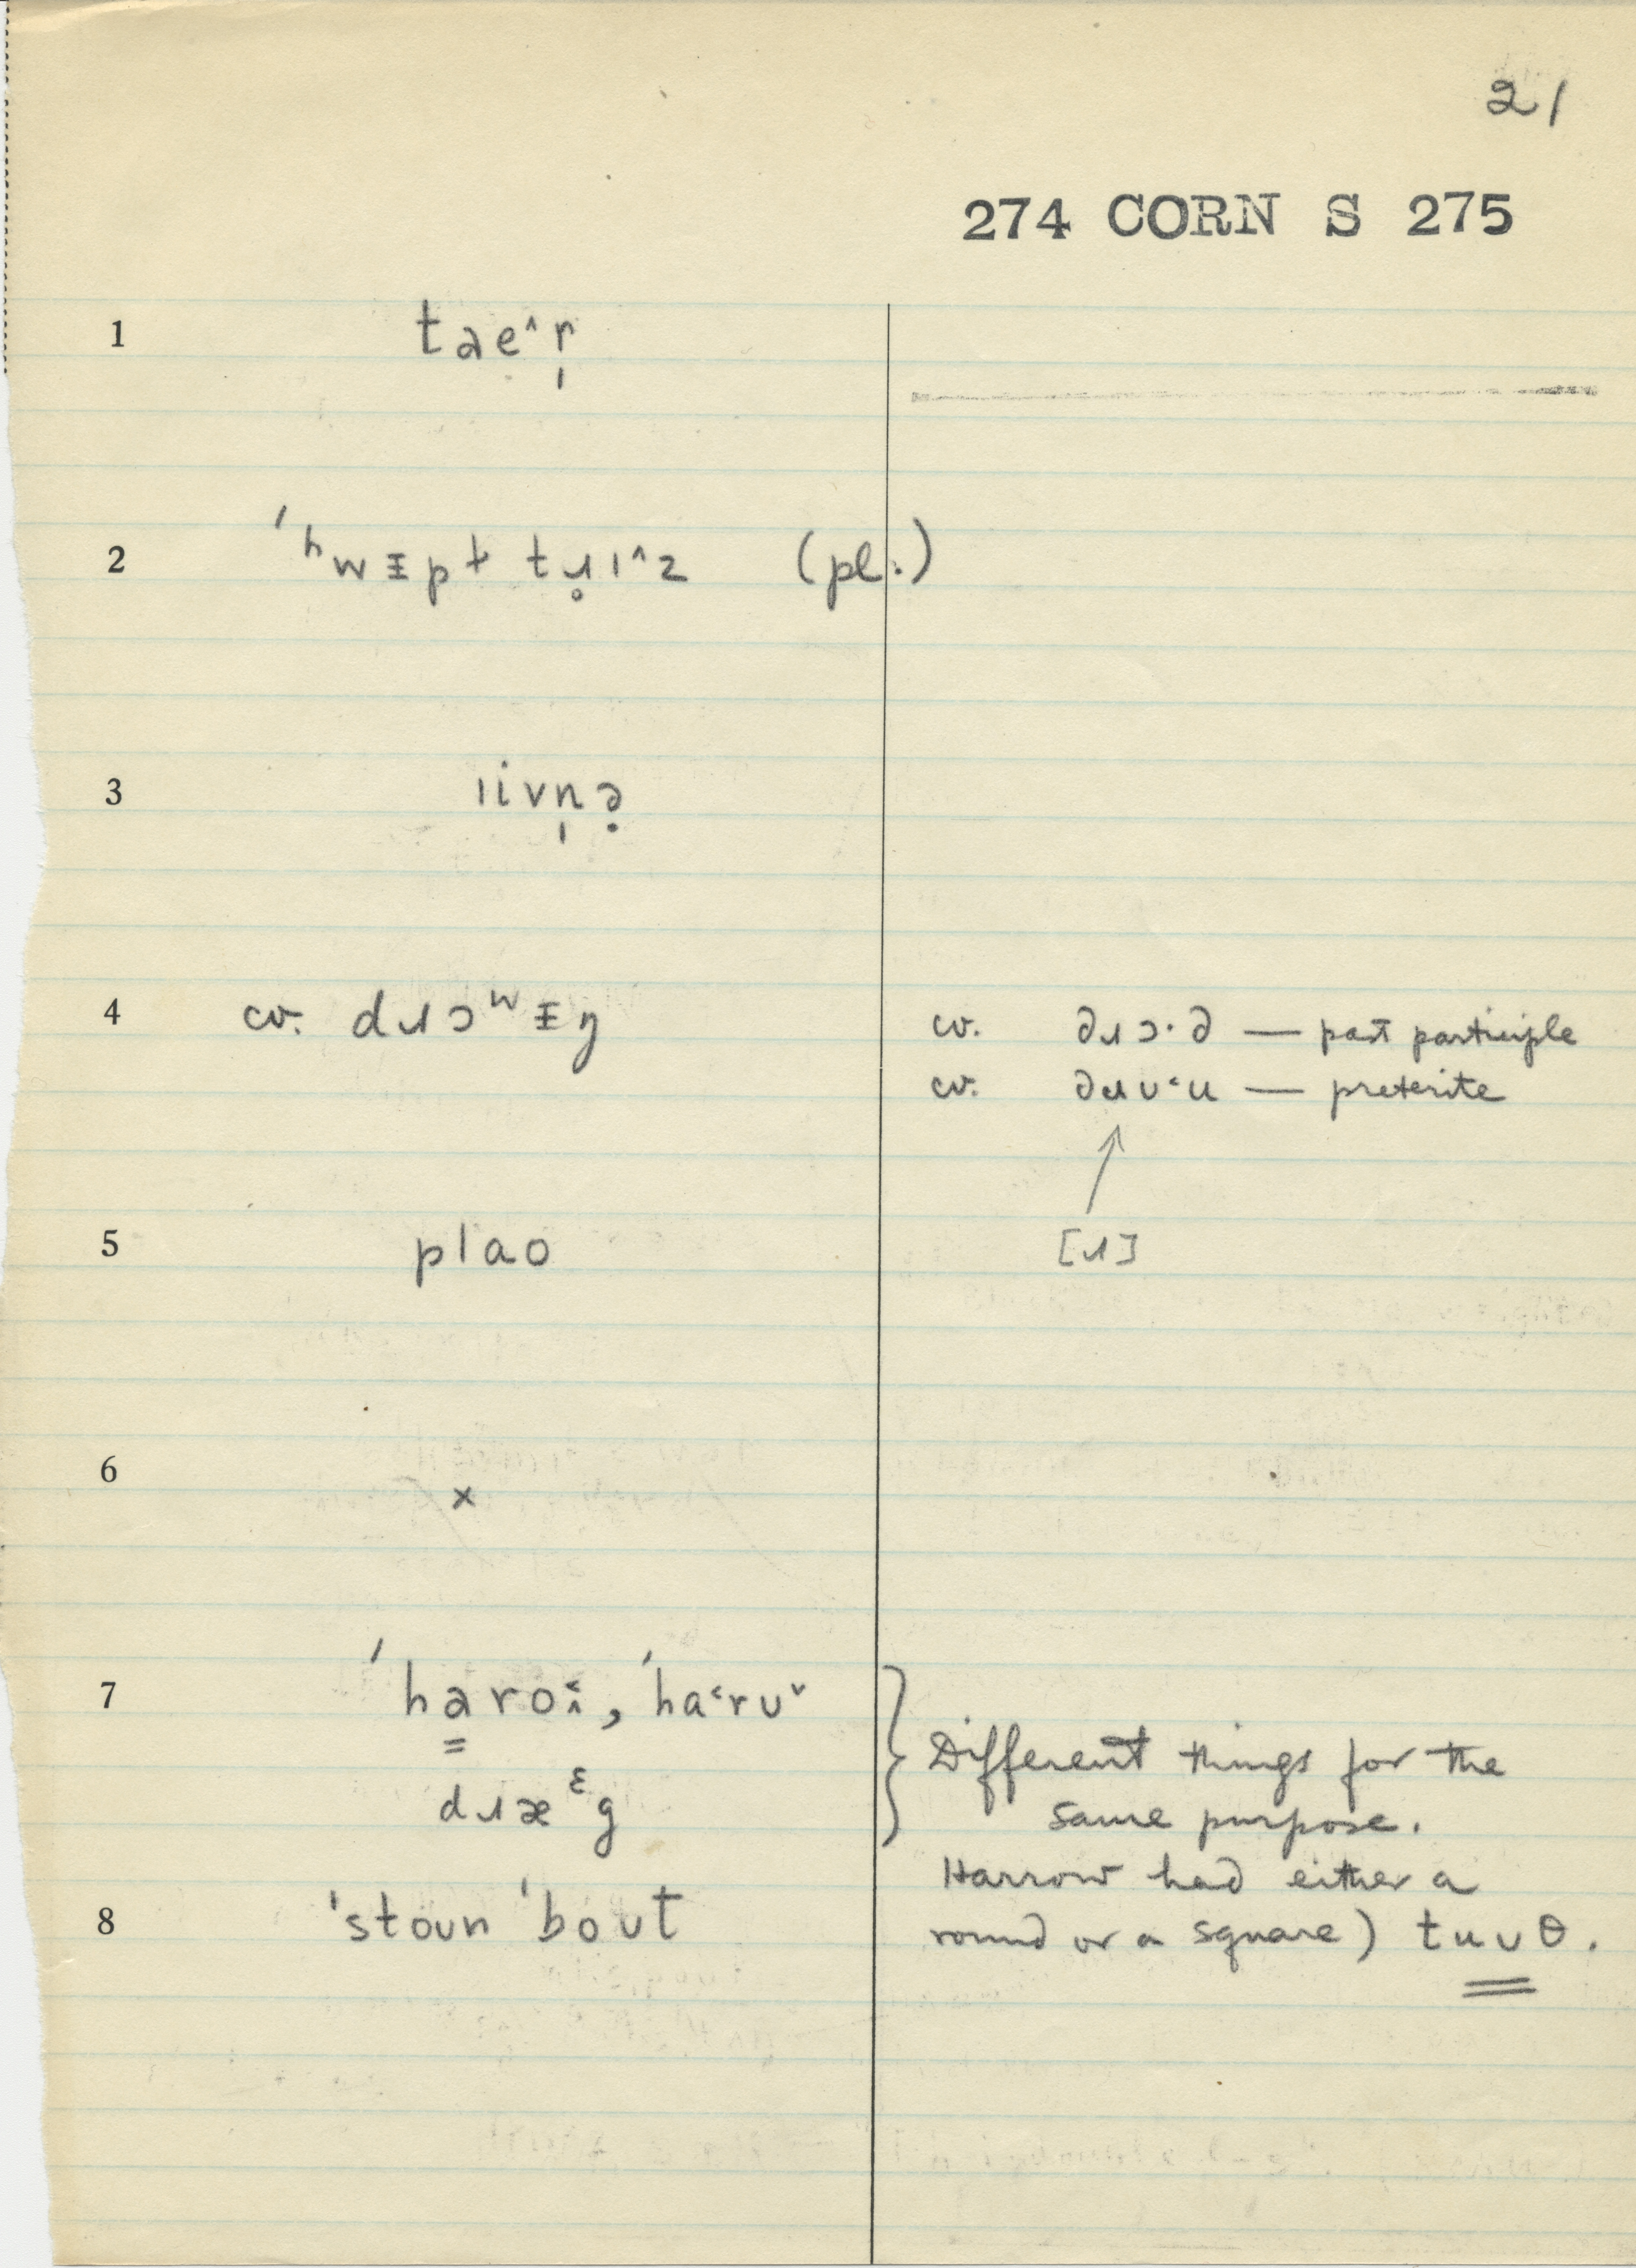 21
274 CORN S 275
1 taeˆr̩
2 ˈʰwᵻpɫ tɹ̥ɪˆz (pl.)
3 ɪivn̩ə̣
4 cv. dɹɔʷᵻŋ
cv. dɹɔ·d — past participle
cv. dɹʊ˂u — preterite
[ɹ]
5 plao
6 ×
7 ˈha̳ro˂̭, ˈha˂rʊˇ
dɹæᵋg
} Different things for the
same purpose.
Harrow had either a
round or a square) tuʊθ.
8 ˈstoun ˈboʊt